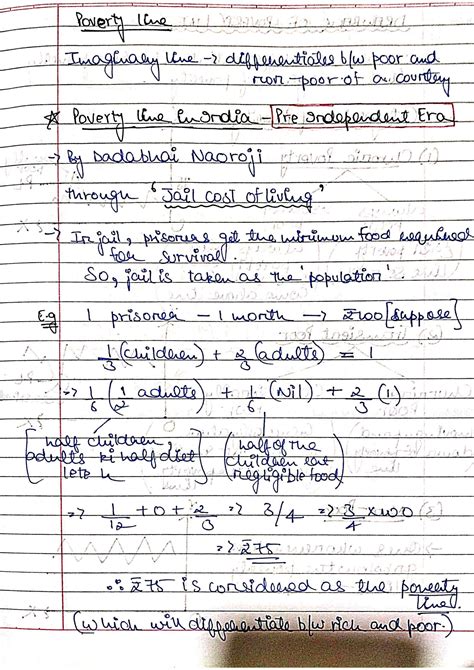 Poverty line
Imaginary line → differentiates b/w poor and
non-poor of a country
☆ Poverty line in India - Pre Independent Era
→ By Dadabhai Naoroji
through 'Jail cost of living'
→ In jail, prisoners get the minimum food required
for survival.
So, jail is taken as the 'population'.
E.g 1 prisoner - 1 month → ₹100 [suppose]
1/3 (children) + 2/3 (adults) = 1
⇒ 1/6 (1/2 adults) + 1/6 (Nil) + 2/3 (1)
[half children, adults ki half diet lete h] (half of the children eat negligible food)
⇒ 1/12 + 0 + 2/3 ⇒ 3/4 ⇒ 3/4 × 100
⇒ ₹75
∴ ₹75 is considered as the poverty
line.
(which will differentiate b/w rich and poor.)